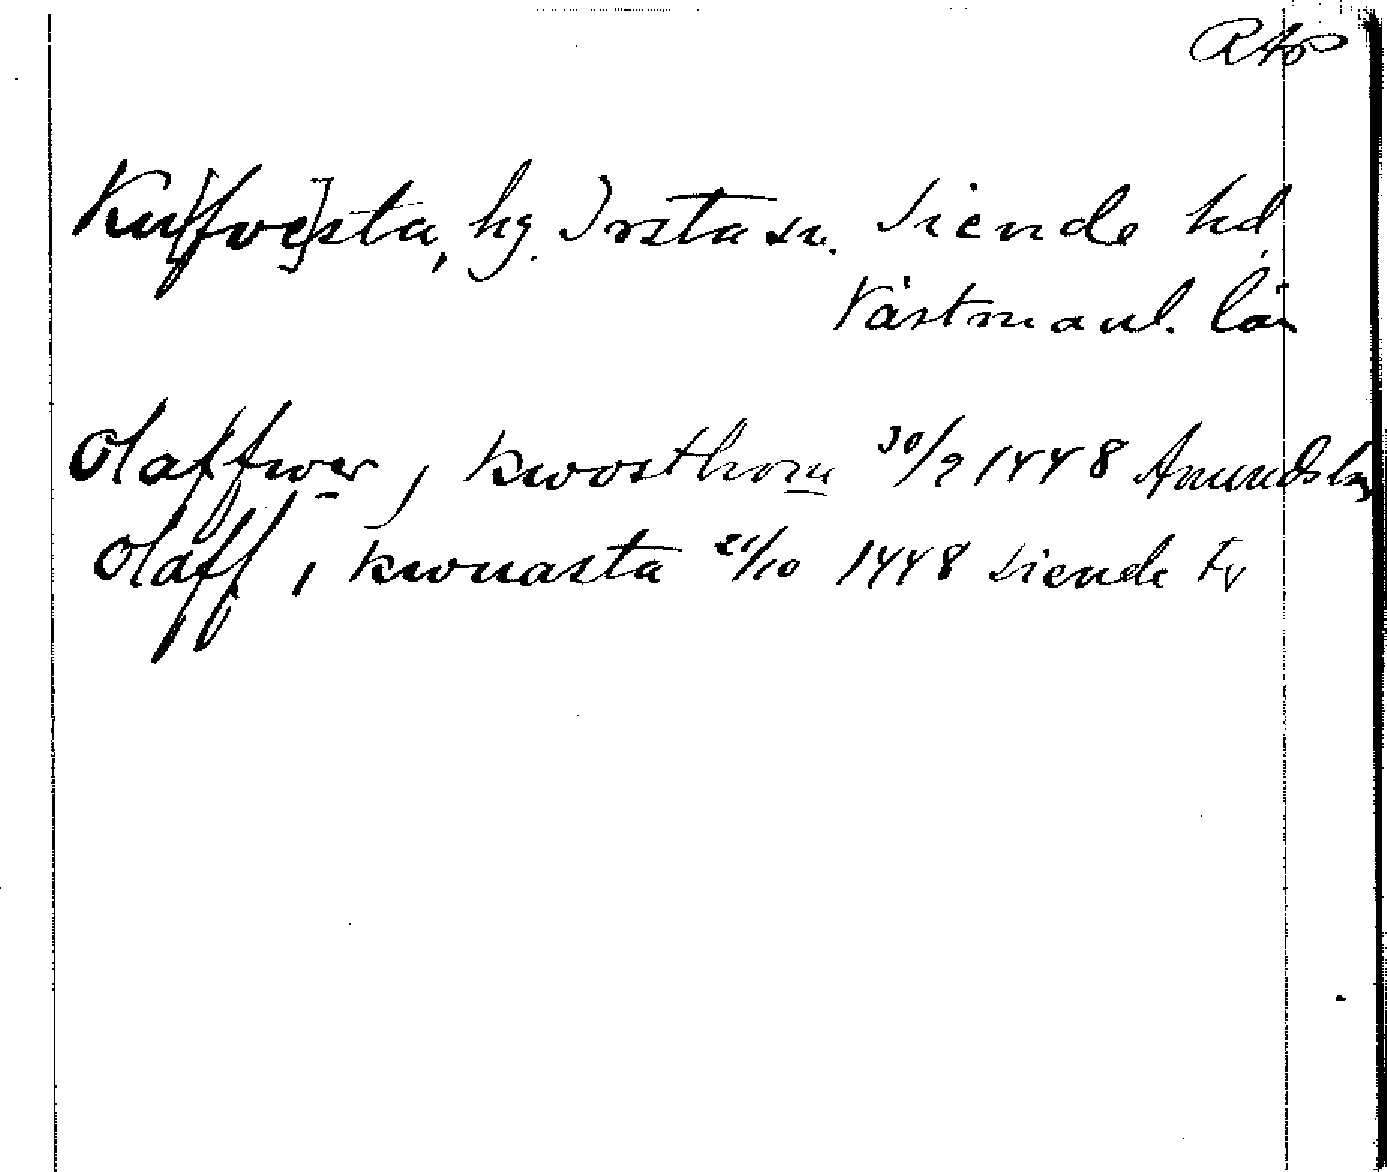 RAp
Ku[fve]sta, hg. Irsta sn. Siende hd
Västmanl. län
Olaffwer j kwosthom 30/9 1448 Amundsby
Olaff i kwnasta 21/10 1448 Siende Tg